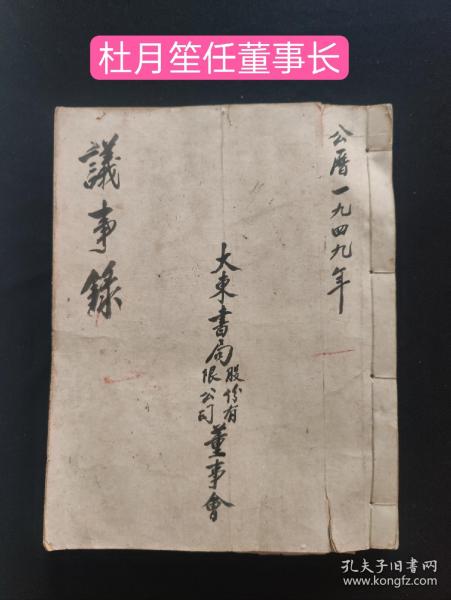 杜月笙任董事长
公曆一九四九年
大東書局股份有限公司董事會
議事錄
孔夫子旧书网
www.kongfz.com